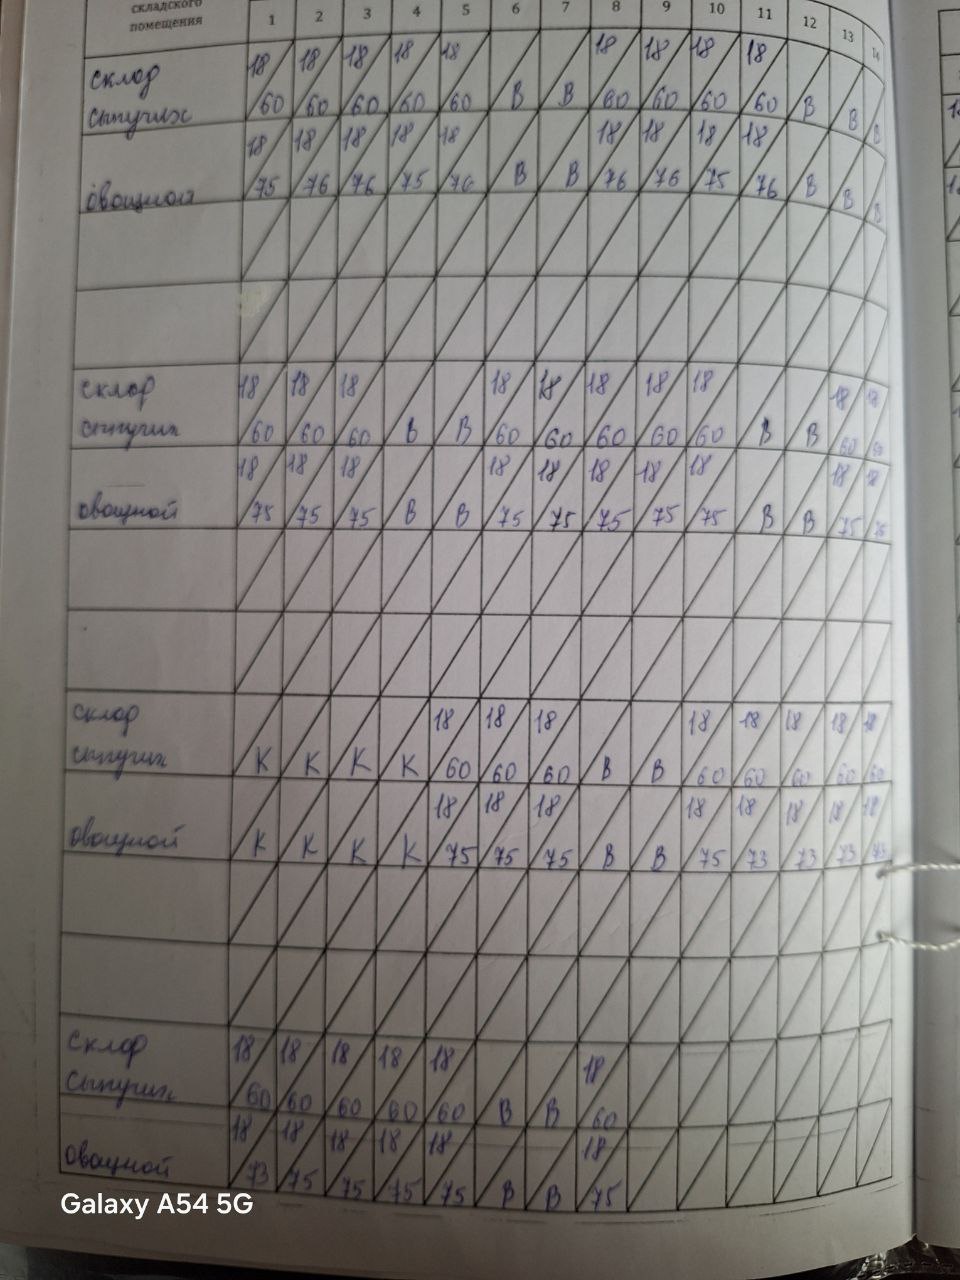 складского
помещения 1 2 3 4 5 6 7 8 9 10 11 12 13 14
склад 18 18 18 18 18 18 18 18 18
сыпучих 60 60 60 60 60 В В 60 60 60 60 В В В
18 18 18 18 18 18 18 18 18
овощной 75 76 76 75 76 В В 76 76 75 76 В В В
склад 18 18 18 18 18 18 18 18 18 18
сыпучих 60 60 60 В В 60 60 60 60 60 В В 60 60
18 18 18 18 18 18 18 18 18 18
овощной 75 75 75 В В 75 75 75 75 75 В В 75 75
склад 18 18 18 18 18 18 18 18
сыпучих К К К К 60 60 60 В В 60 60 60 60 60
18 18 18 18 18 18 18 18
овощной К К К К 75 75 75 В В 75 73 73 73 73
склад 18 18 18 18 18 18
сыпучих 60 60 60 60 60 В В 60
18 18 18 18 18 18
овощной 73 75 75 75 75 В В 75
Galaxy A54 5G